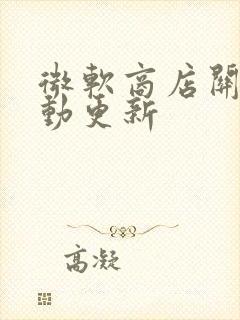 微軟商店開
動更新
高凝